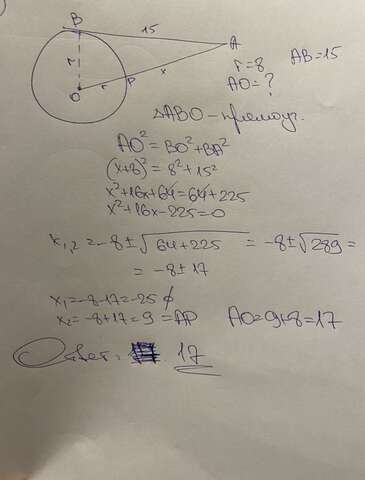 B
15
A
r
x
r = 8
AB = 15
O
r
P
AO = ?
△ABO – прямоуг.
AO² = BO² + BA²
(x+8)² = 8² + 15²
x² + 16x + 64 = 64 + 225
x² + 16x - 225 = 0
x₁,₂ = -8 ± √64 + 225 = -8 ± √289 =
= -8 ± 17
x₁ = -8 - 17 = -25 ∅
x₂ = -8 + 17 = 9 = AP AO = 9 + 8 = 17
Ответ: 17